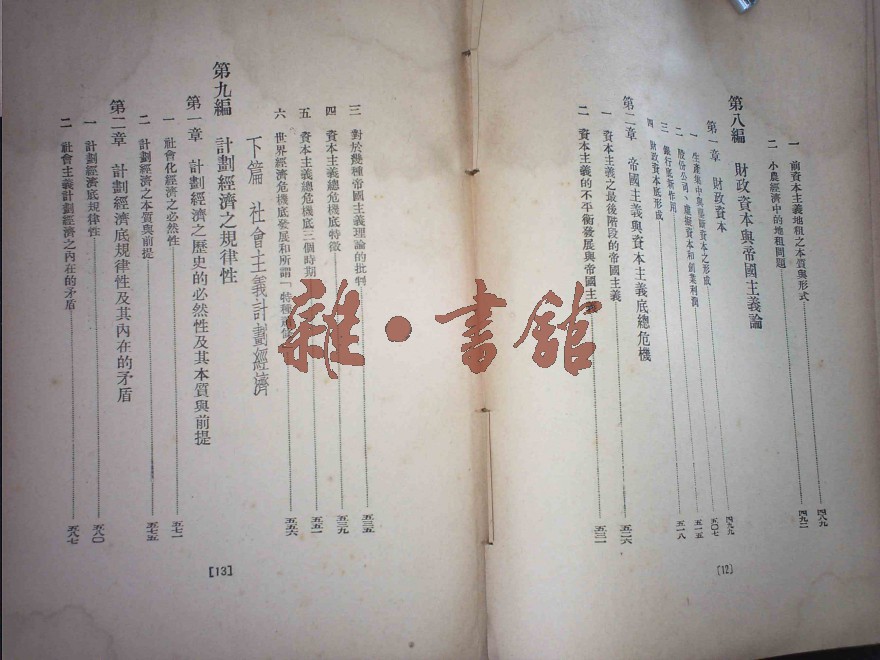 一 前資本主義地租之本質與形式 四八九
二 小農經濟中的地租問題 四九二
第八編 財政資本與帝國主義論
第一章 財政資本 四九九
一 生產集中與壟斷資本之形成 五〇七
二 股份公司、虛擬資本和創業利潤 五一五
三 銀行底新作用 五一八
四 財政資本底形成
第二章 帝國主義與資本主義底總危機
一 資本主義之最後階段的帝國主義 五二六
二 資本主義的不平衡發展與帝國主義 五三一
[12]
三 對於幾種帝國主義理論的批判 五三五
四 資本主義總危機底特徵 五三九
五 資本主義總危機底三個時期 五五一
六 世界經濟危機底發展和所謂「特種 五五六
下篇 社會主義計劃經濟
第九編 計劃經濟之規律性
第一章 計劃經濟之歷史的必然性及其本質與前提
一 社會化經濟之必然性 五七一
二 計劃經濟之本質與前提 五七五
第二章 計劃經濟底規律性及其內在的矛盾
一 計劃經濟底規律性 五八〇
二 社會主義計劃經濟之內在的矛盾 五八七
[13]
雜·書館